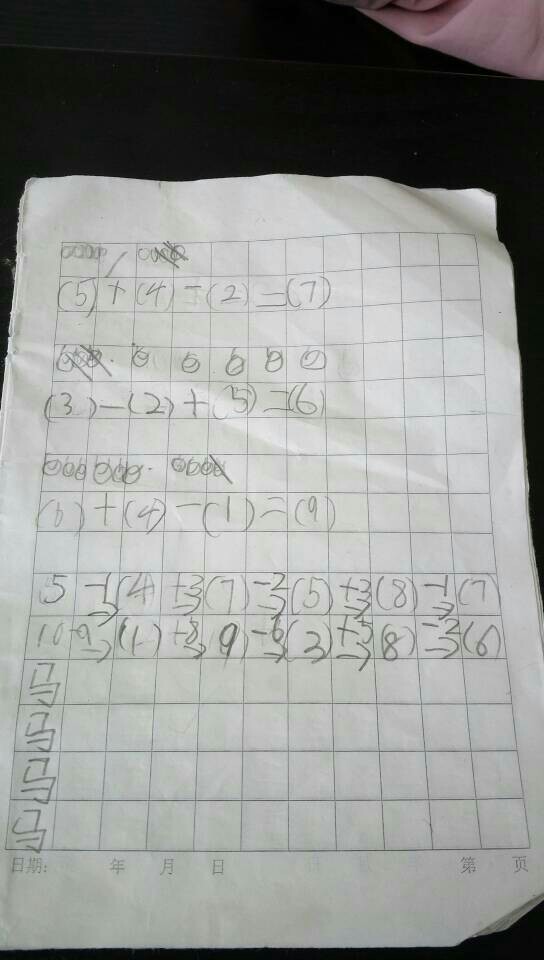 (5)+(4)-(2)=(7)
(3)-(2)+(5)=(6)
(6)+(4)-(1)=(9)
5 -1→ (4 +3→ (7) -2→ (5) +3→ (8) -1→ (7)
10 -9→ (1) +8→ 9) -6→ (3) +5→ 8) -2→ (6)
号
号
号
号
日期: 年 月 日 第 页